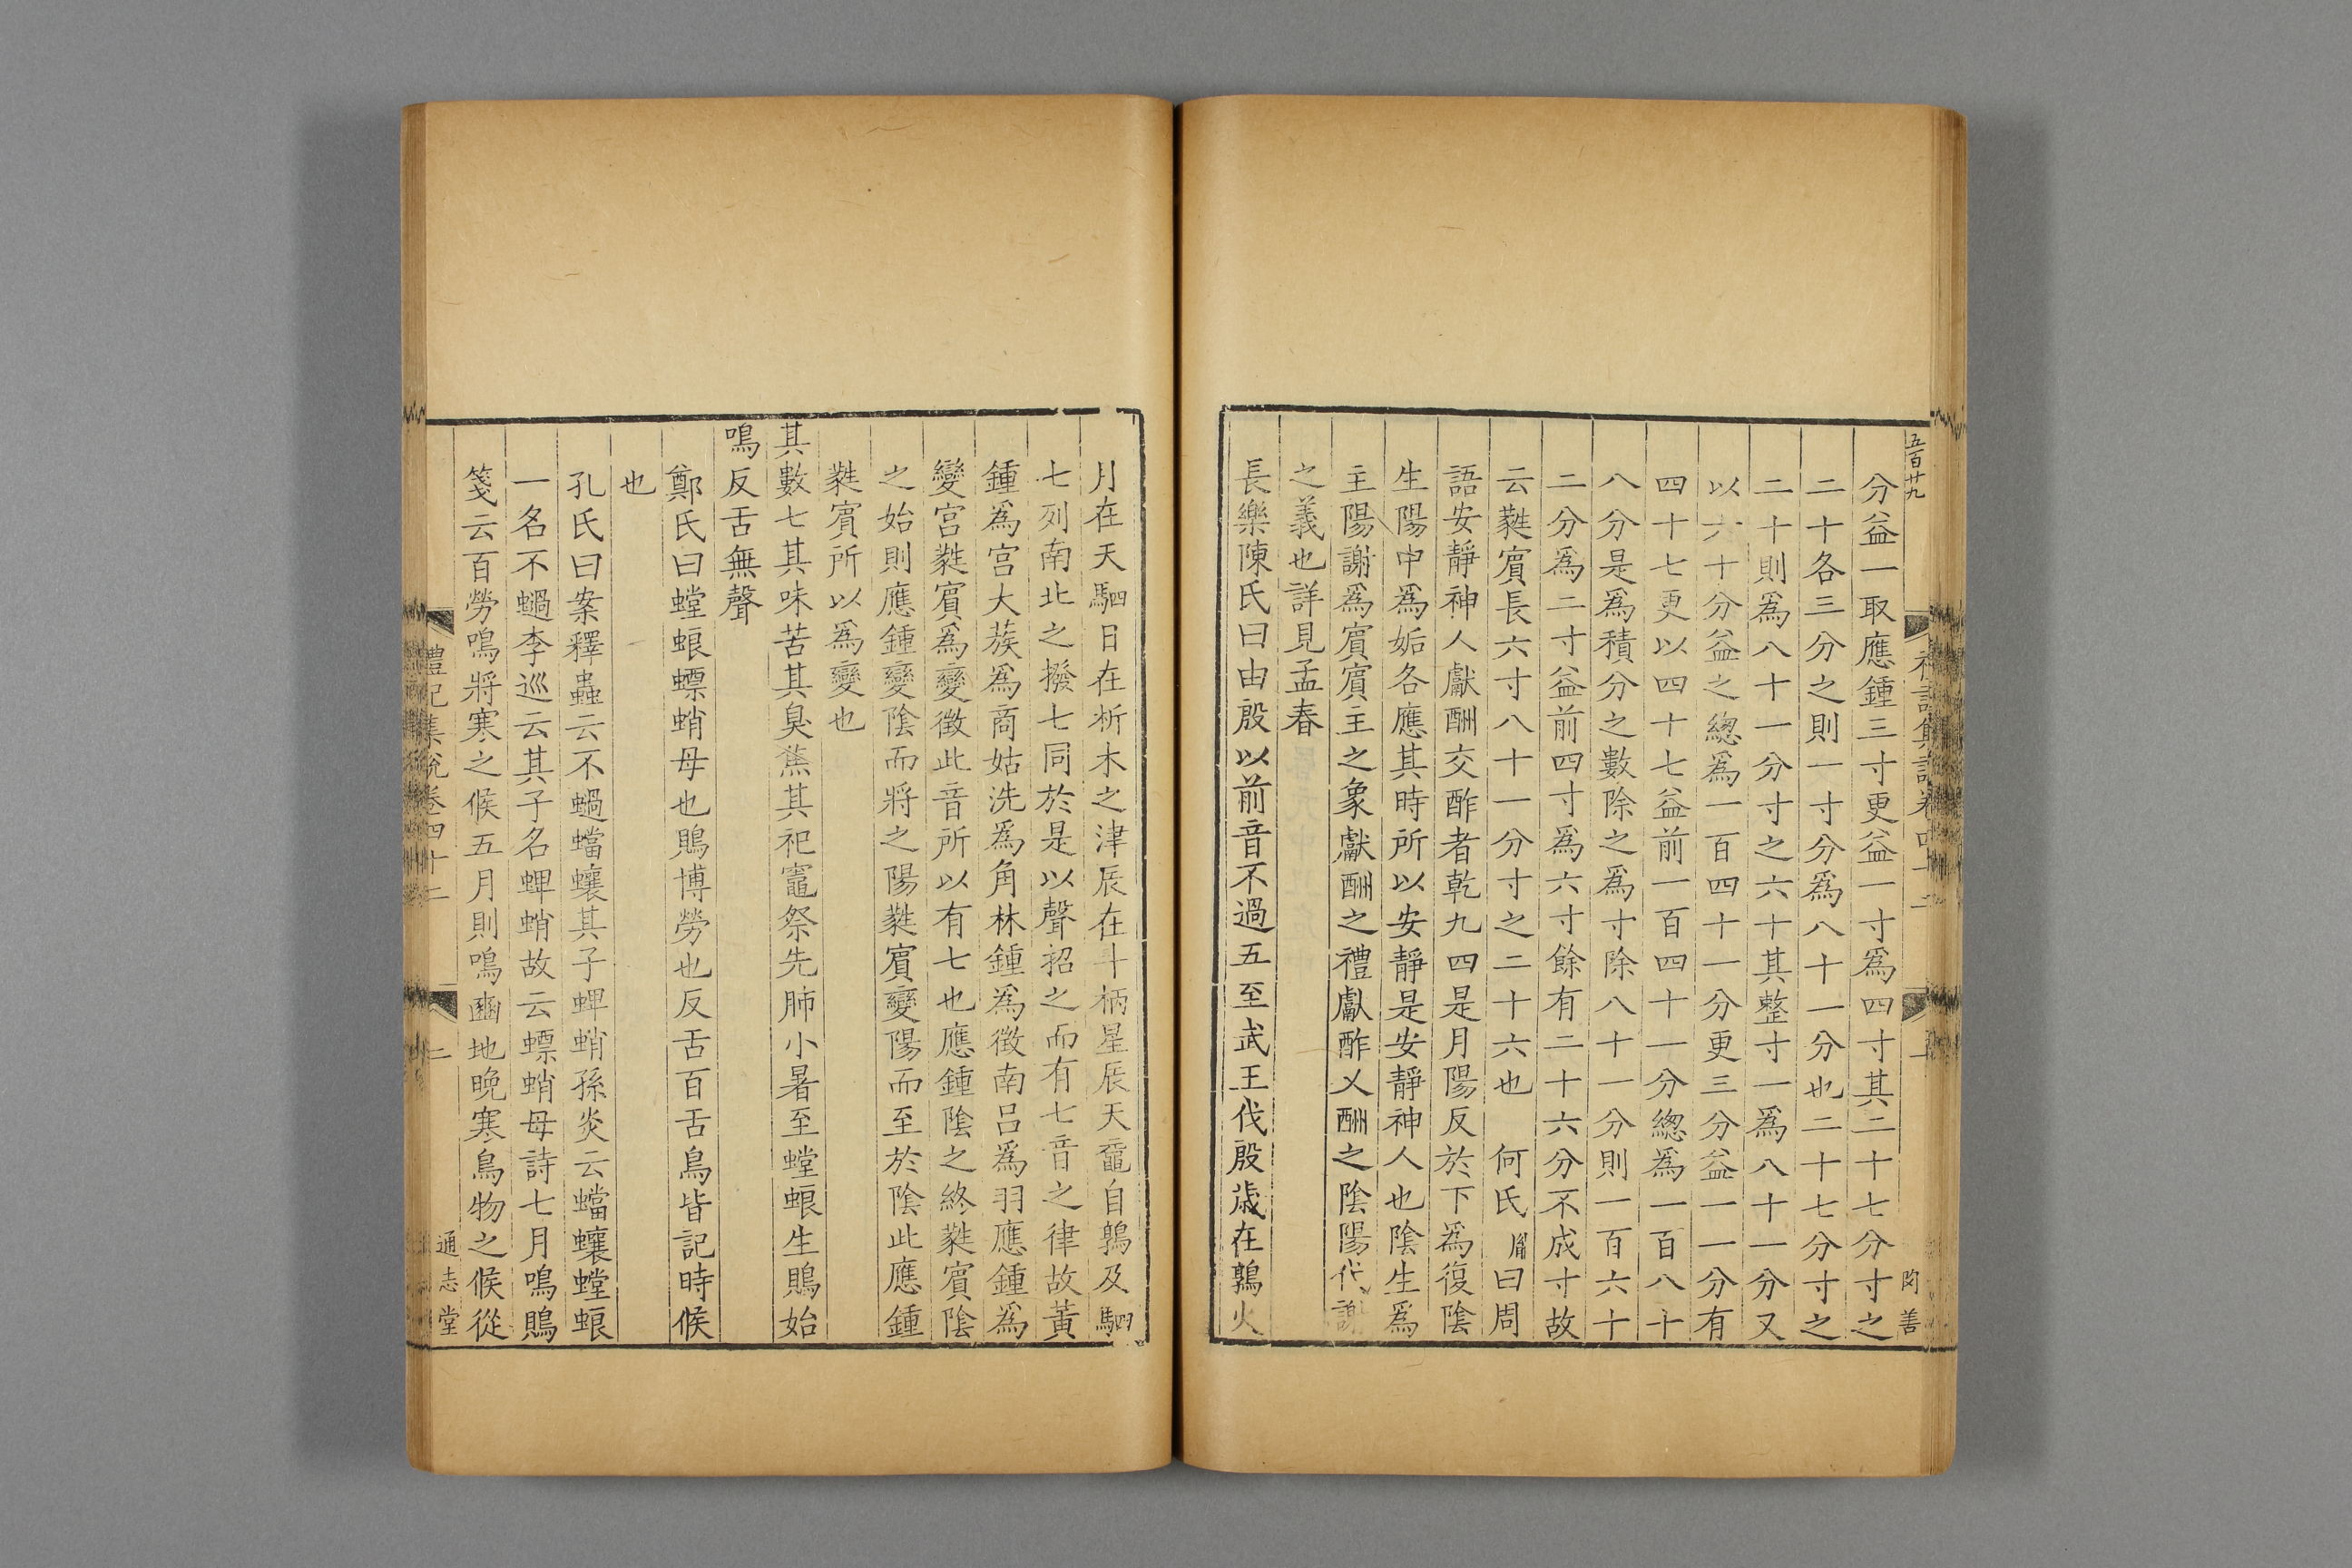 五百廿九
分益一取應鍾三寸更益一寸爲四寸其二十七分寸之
二十各三分之則一寸分爲八十一分也二十七分寸之
二十則爲八十一分寸之六十其整寸一爲八十一分又
以六十分益之總爲一百四十一分更三分益一一分有
四十七更以四十七益前一百四十一分總爲一百八十
八分是爲積分之數除之爲寸除八十一分則一百六十
二分爲二寸益前四寸爲六寸餘有二十六分不成寸故
云蕤賔長六寸八十一分寸之二十六也　何氏胤曰周
語安靜神人獻酬交酢者乾九四是月陽反於下爲復陰
生陽中爲姤各應其時所以安靜是安靜神人也陰生爲
主陽謝爲賔賔主之象獻酬之禮獻酢乂酬之陰陽代謝
之義也詳見孟春
長樂陳氏曰由殷以前音不過五至武王伐殷歳在鶉火
月在天駟日在析木之津辰在斗柄星辰天黿自鶉及駟
七列南北之揆七同於是以聲招之而有七音之律故黃
鍾爲宫大蔟爲商姑洗爲角林鍾爲徵南吕爲羽應鍾爲
變宫蕤賔爲變徵此音所以有七也應鍾陰之終蕤賔陰
之始則應鍾變陰而將之陽蕤賔變陽而至於陰此應鍾
蕤賔所以爲變也
其數七其味苦其臭焦其祀竈祭先肺小暑至螳蜋生鵙始
鳴反舌無聲
鄭氏曰螳蜋螵蛸母也鵙博勞也反舌百舌鳥皆記時候
也
孔氏曰案釋蟲云不蜩蟷蠰其子蜱蛸孫炎云蟷蠰螳蜋
一名不蜩李巡云其子名蜱蛸故云螵蛸母詩七月鳴鵙
箋云百勞鳴將寒之候五月則鳴豳地晚寒鳥物之候從
禮記集說卷四十二　二　通志堂